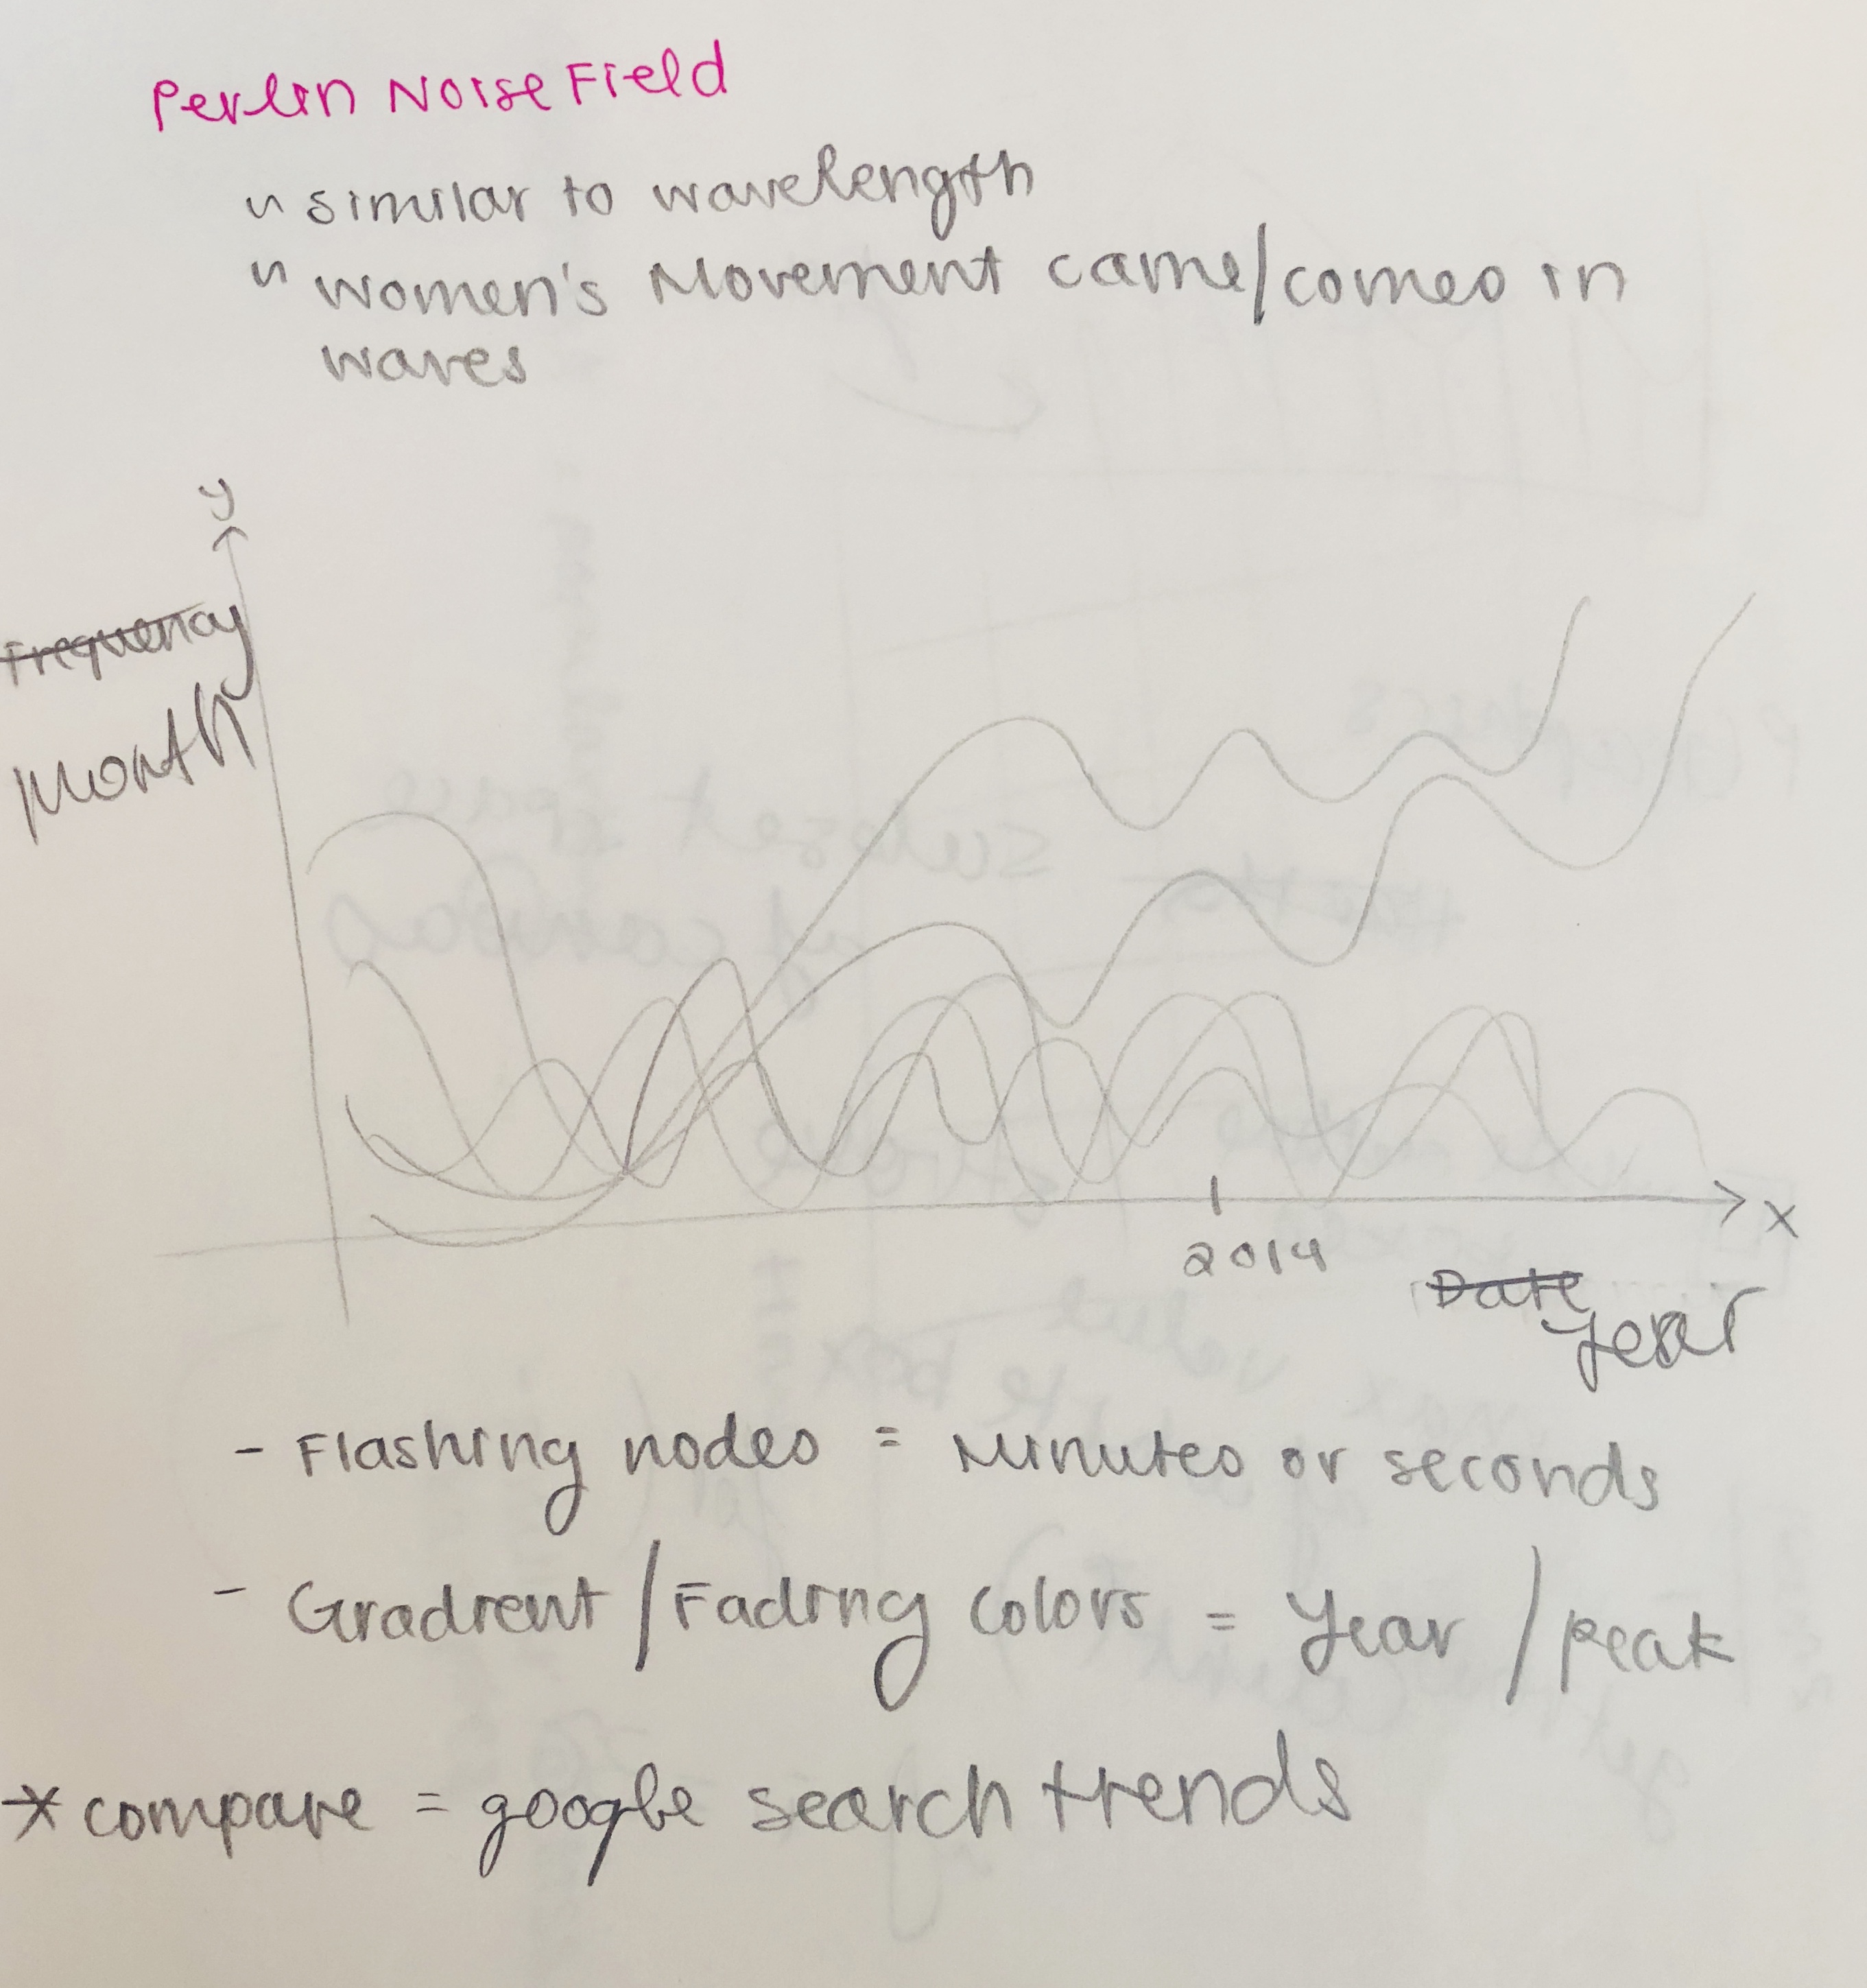 Perlin Noise Field
" similar to wavelength
" Women's Movement came/comes in
waves
y
Frequency
Month
x
2014
Date
year
- Flashing nodes = Minutes or seconds
- Gradient / Fading colors = Year / peak
* compare = google search trends